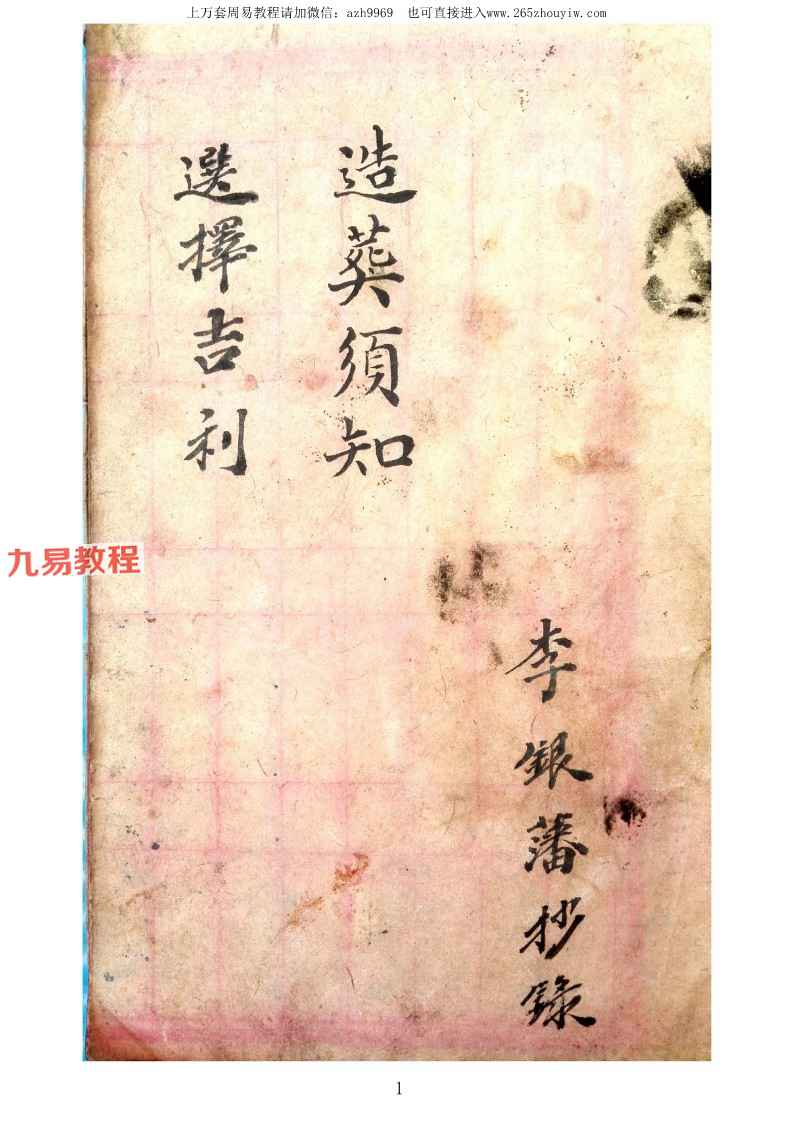 上万套周易教程请加微信：azh9969　也可直接进入www.265zhouyiw.com
造葬須知
選擇吉利
九易教程
李銀藩抄錄
1